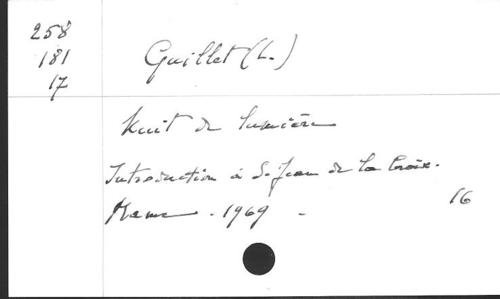 258
181
17
Guillet (L.)
Nuit de lumière
Introduction à S. Jean de la Croix.
Mame - 1969 -
16